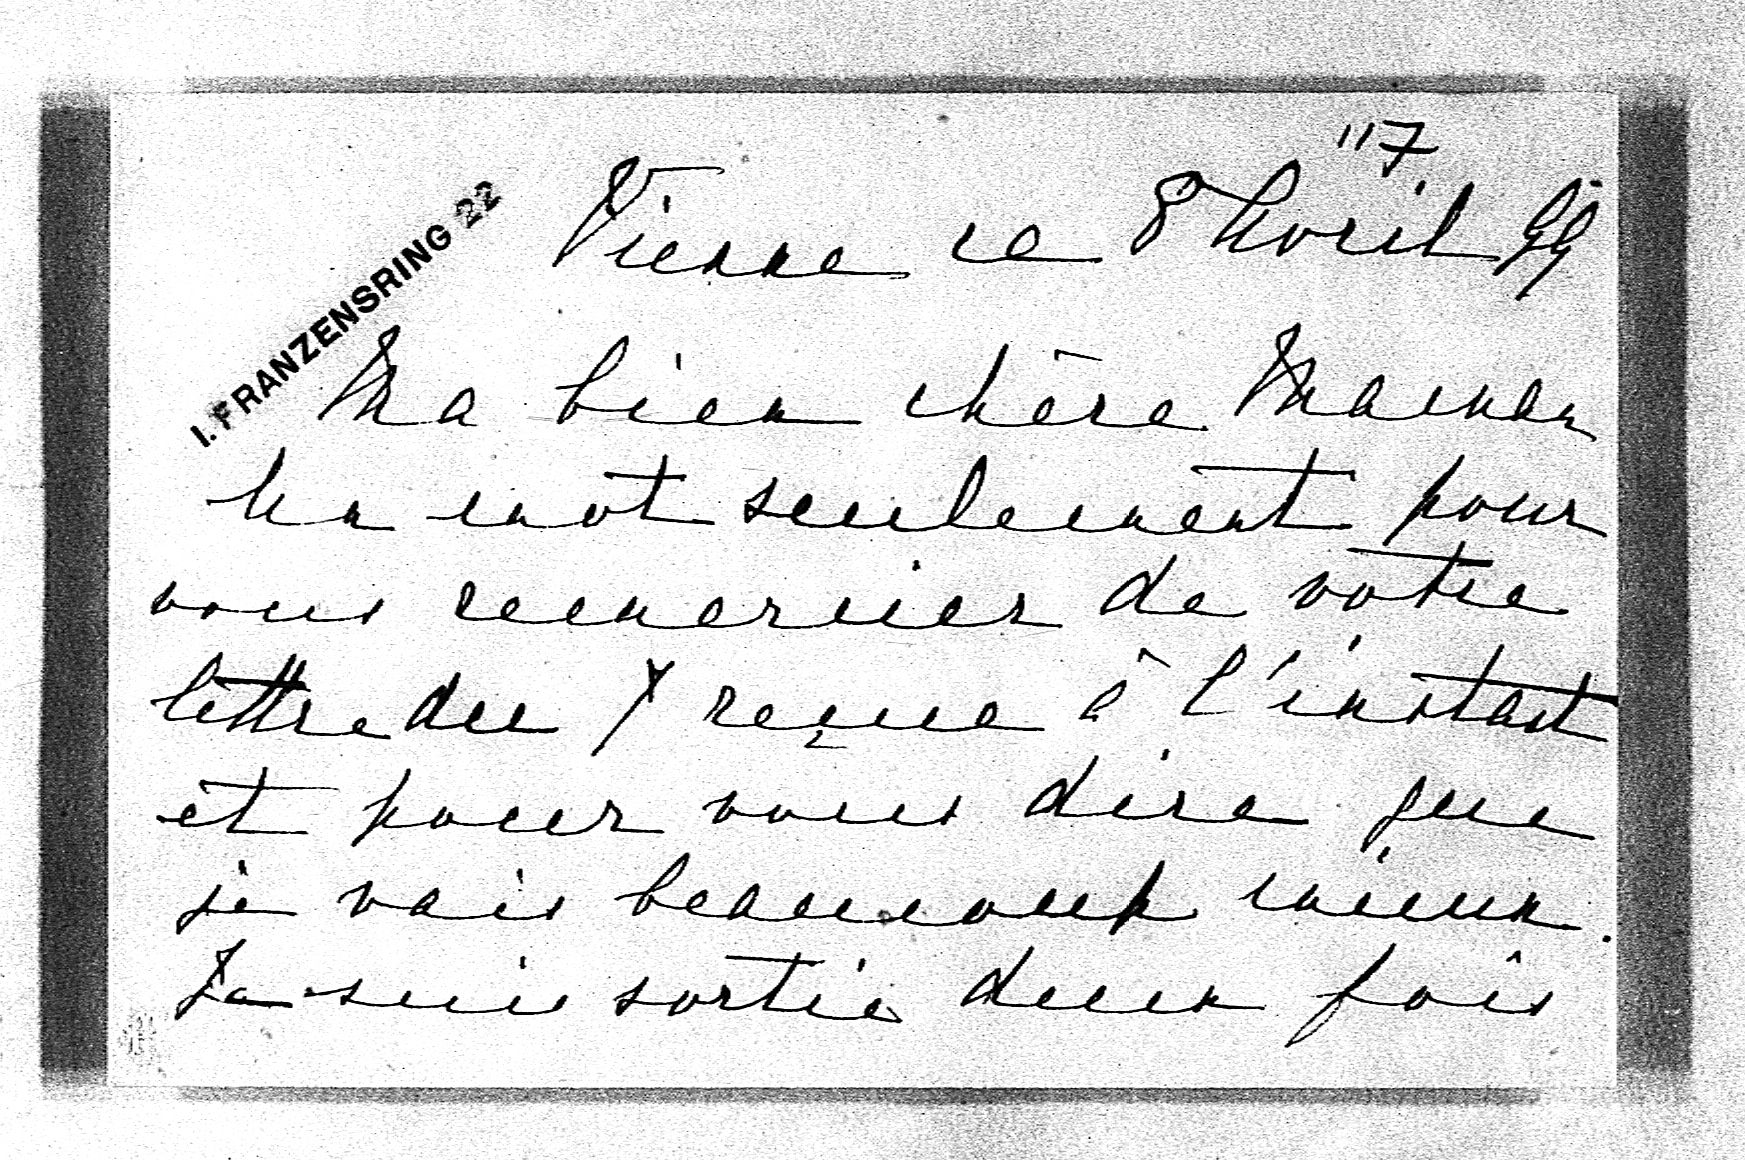 117
I. FRANZENSRING 22
Vienne ce 8 Avril 99
Ma bien chère Maman
Un mot seulement pour
vous remercier de votre
lettre du 7 reçue à l'instant
et pour vous dire que
je vais beaucoup mieux.
Je suis sortie deux fois